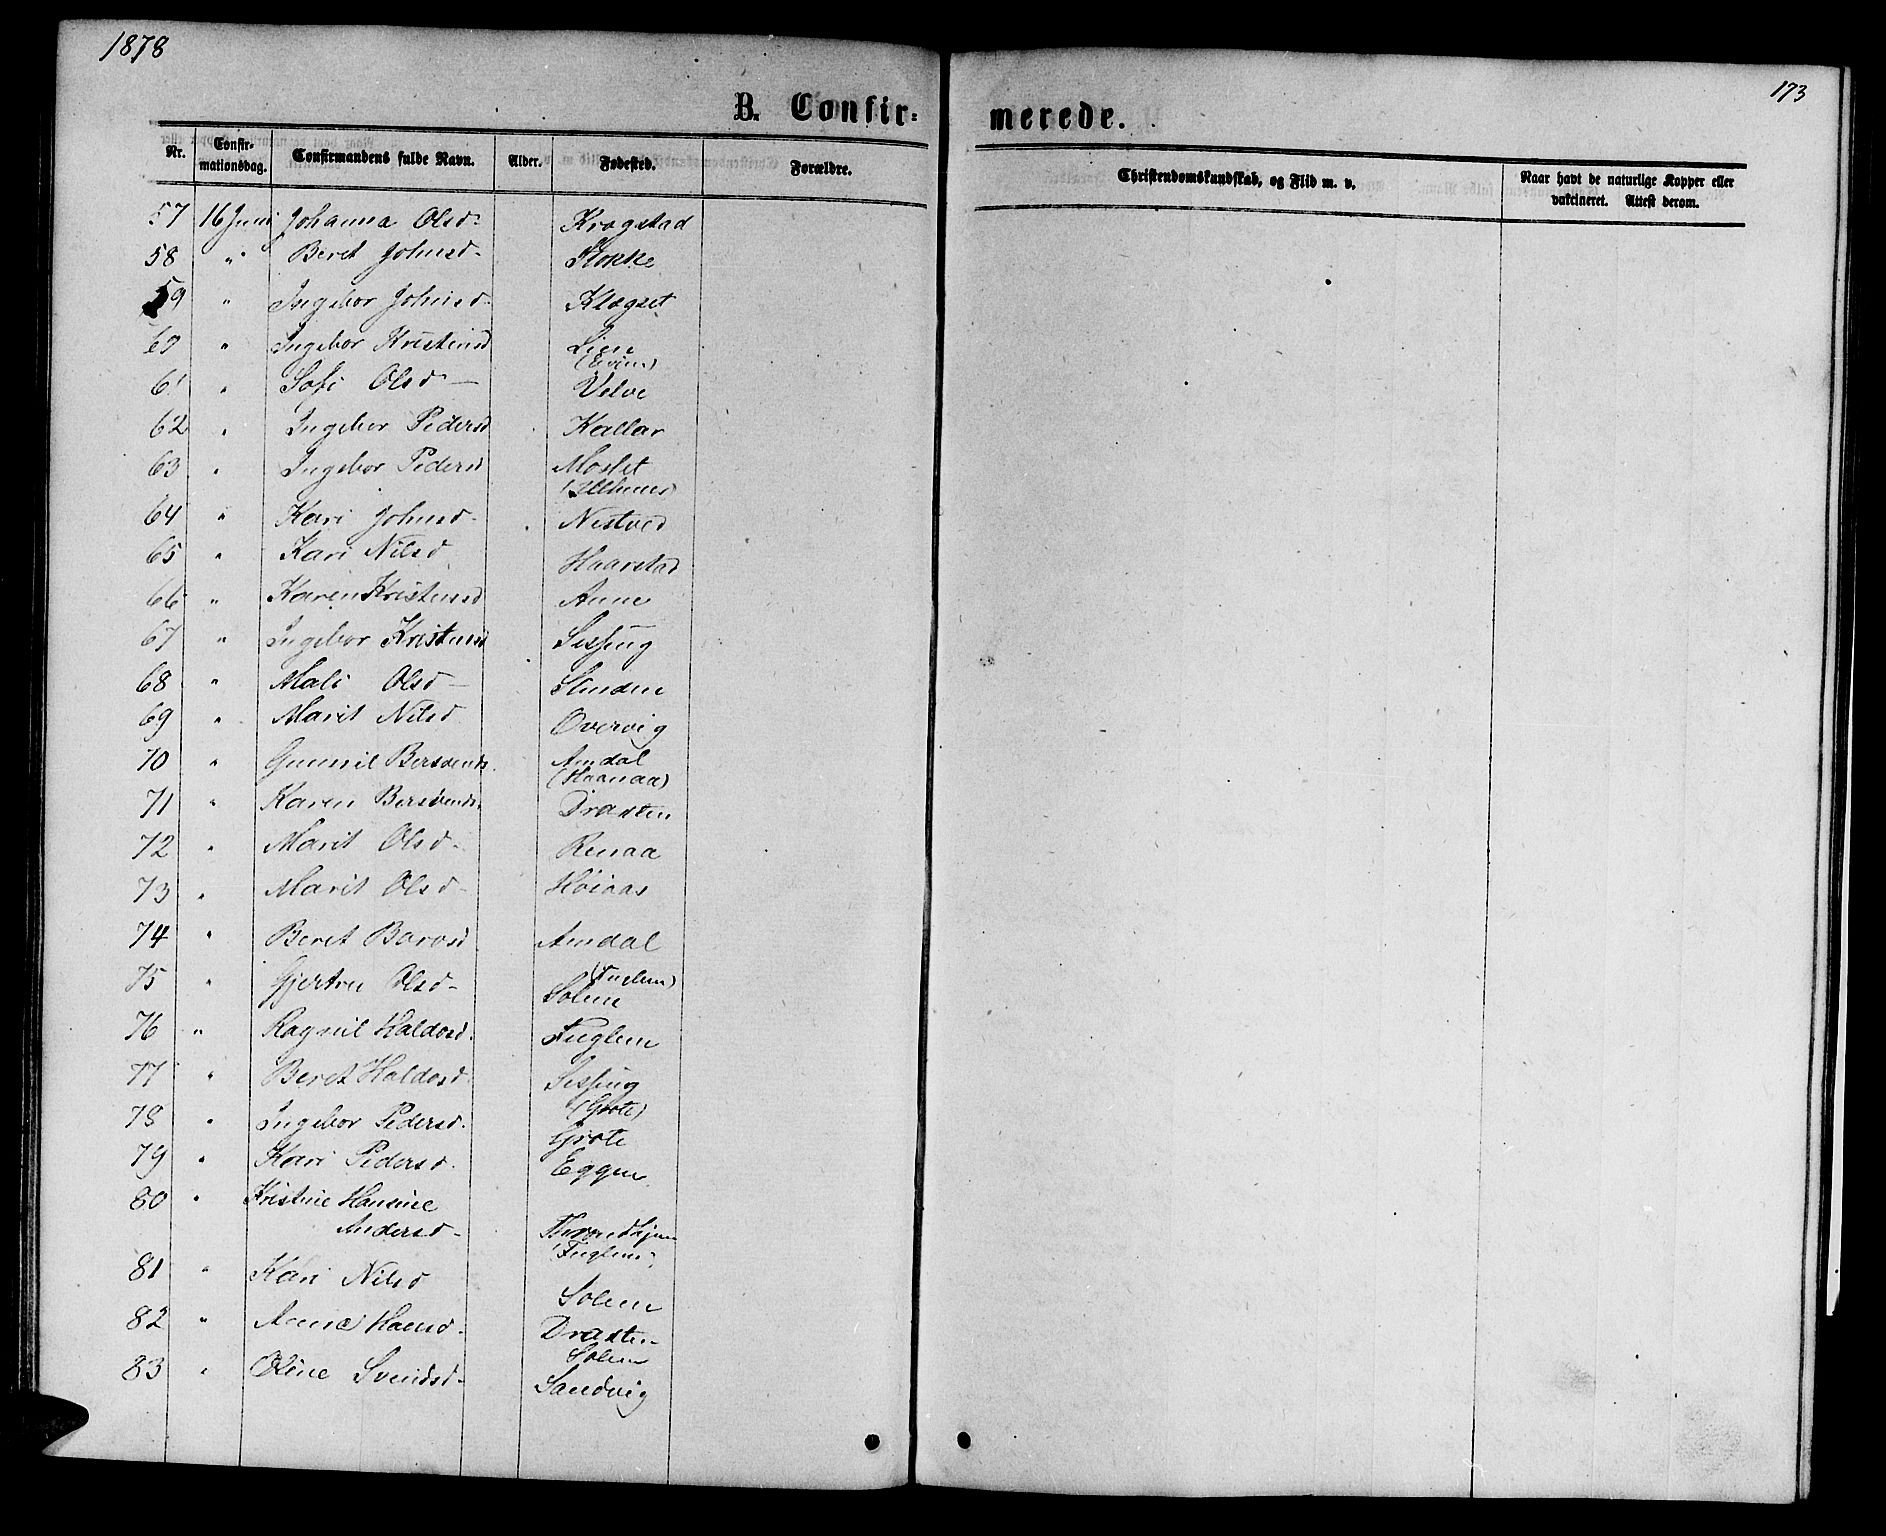 1878
173
B. Confir= merede.
Nr. Confir-mationsdag. Confirmandens fulde Navn. Alder. Fødested. Forældre. Christendomskundskab, og Flid m. v. Naar havt de naturlige Kopper eller vakcineret. Attest derom.
57 16 Juni Johanna Olsd- Kragstad
58 " Beret Johnsd- Stokke
59 " Ingebor Johnsd- Klegset
60 " Ingebor Kristensd Lien
61 " Sofi Olsd - Velve
62 " Ingebor Pedersd Kallar
63 " Ingebor Pedersd Moslet
64 " Kari Johnsd- Nestved
65 " Kari Nilsd Haarstad
66 " Karen Kristensd Aune
67 " Ingebor Kristensd Sesseng
68 " Mali Olsd -
69 " Marit Nilsd Overvig
70 " Gunnil Bersvends. Amdal
(Haanaa)
71 " Karen Bersvends. Draxten
72 " Marit Olsd- Renaa
73 " Marit Olsd- Höiaas
74 " Beret Barosd Amdal
75 " Gjertru Olsd- (Fuglem)
Solem
76 " Ragnil Haldosd. Fuglem
77 " Beret Haldosd. Sesseng
(Grote)
78 " Ingebor Pedersd. Grote
79 " Kari Pedersd. Eggen
80 " Kristine Hansine
Andersd- Throndhjem
(Fuglem)
81 " Kari Nilsd Solem
82 " Anne Hansd. Draxten
Solem
83 " Oline Svendsd- Sandvig